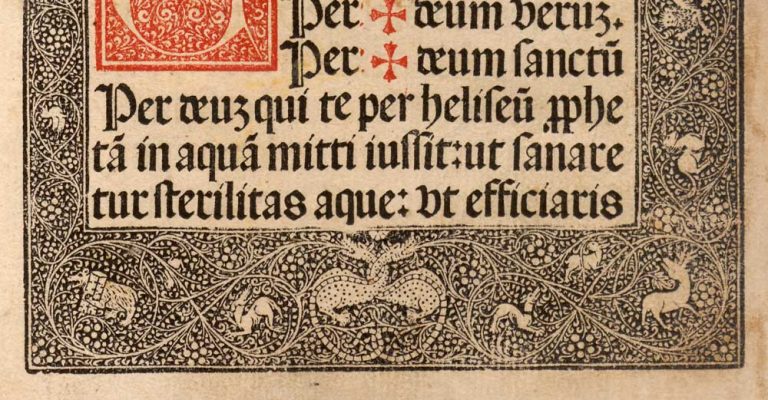 Per ✠ deum veruz.
Per ✠ deum sanctū
Per deuz qui te per heliseū ꝓphe
tā in aquā mitti iussit: ut sanare
tur sterilitas aque: Vt efficiaris